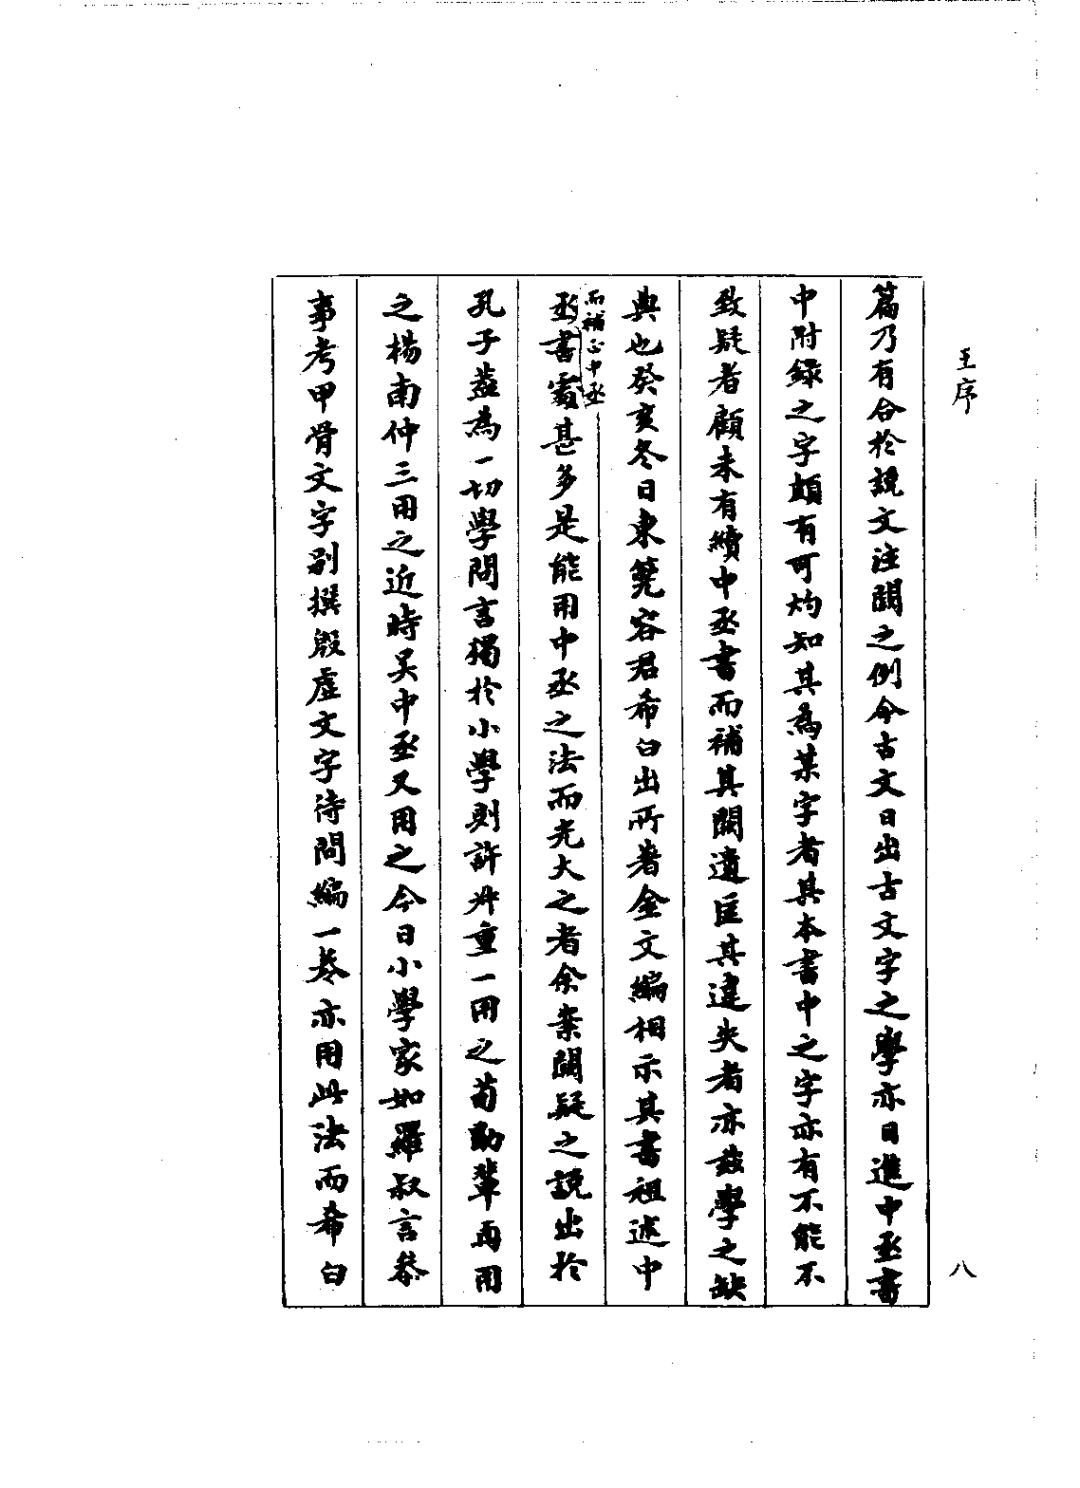 王序
八
篇乃有合於說文注闕之例今古文日出古文字之學亦日進中丞書
中附錄之字頗有可灼知其為某字者其本書中之字亦有不能不
致疑者顧未有續中丞書而補其闕遺匡其違失者亦茲學之缺
典也癸亥冬日東筦容君希白出所著金文編相示其書祖述中
丞書而補正中丞書處甚多是能用中丞之法而光大之者余案闕疑之說出於
孔子蓋為一切學問言獨於小學則許尗重一用之荀勖輩再用
之楊南仲三用之近時吴中丞又用之今日小學家如羅叔言參
事考甲骨文字別撰殷虛文字待問編一卷亦用此法而希白